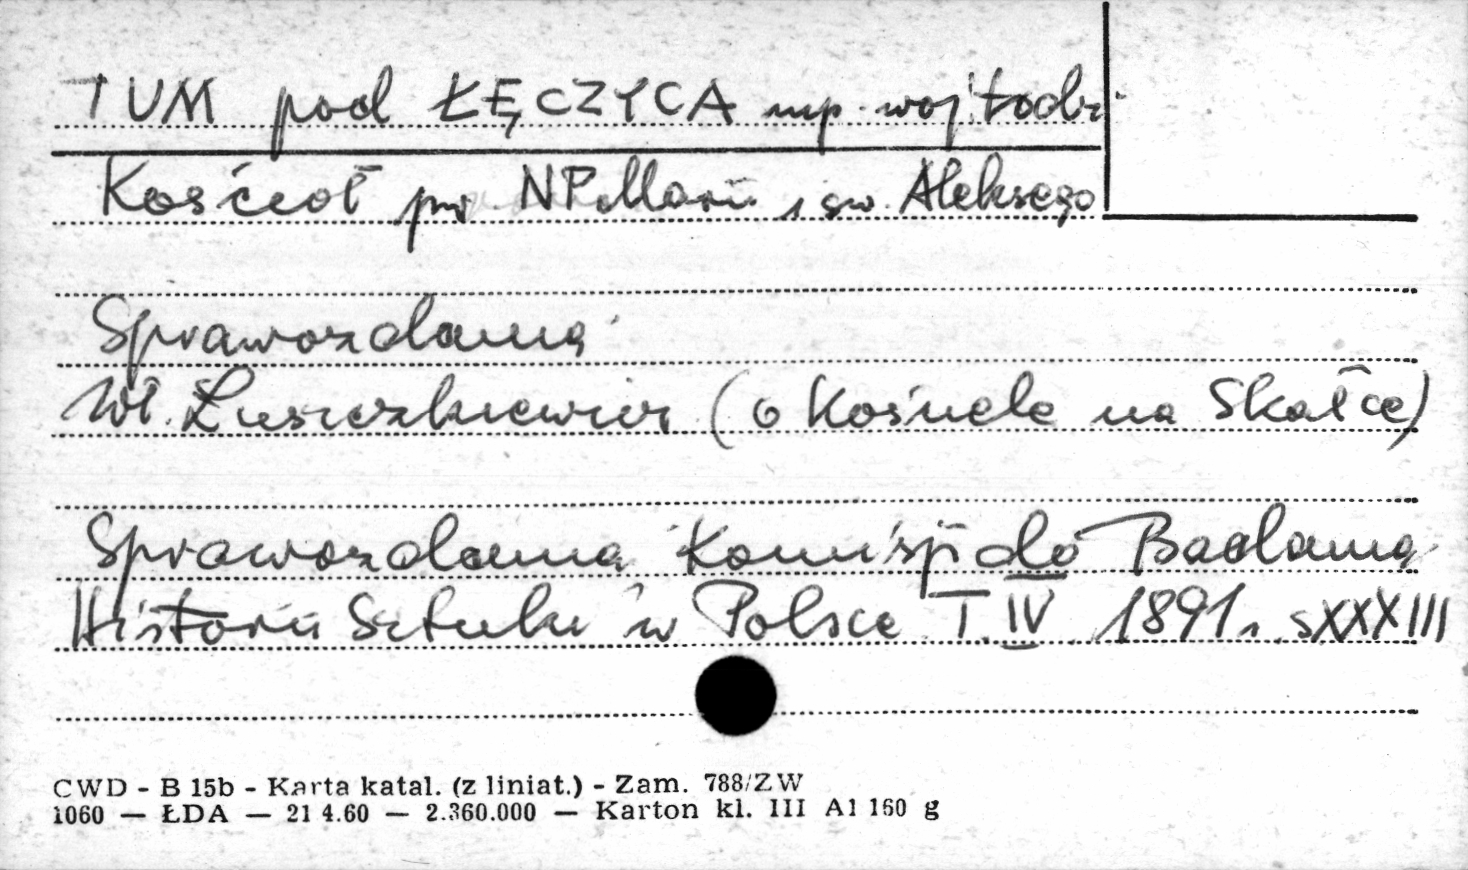 TUM pod ŁĘCZYCA woj. łodz.
Kościoł pw NPMarii i św. Aleksego
Sprawozdania
Wł. Łuszczkiewicz (o kościele na Skałce)
Sprawozdania Komisji do Badania
Historii Sztuki w Polsce T. IV 1891 r. s XXXIII
CWD - B 15b - Karta katal. (z liniat.) - Zam. 788/ZW
1060 — ŁDA — 21 4.60 — 2.360.000 — Karton kl. III A1 160 g